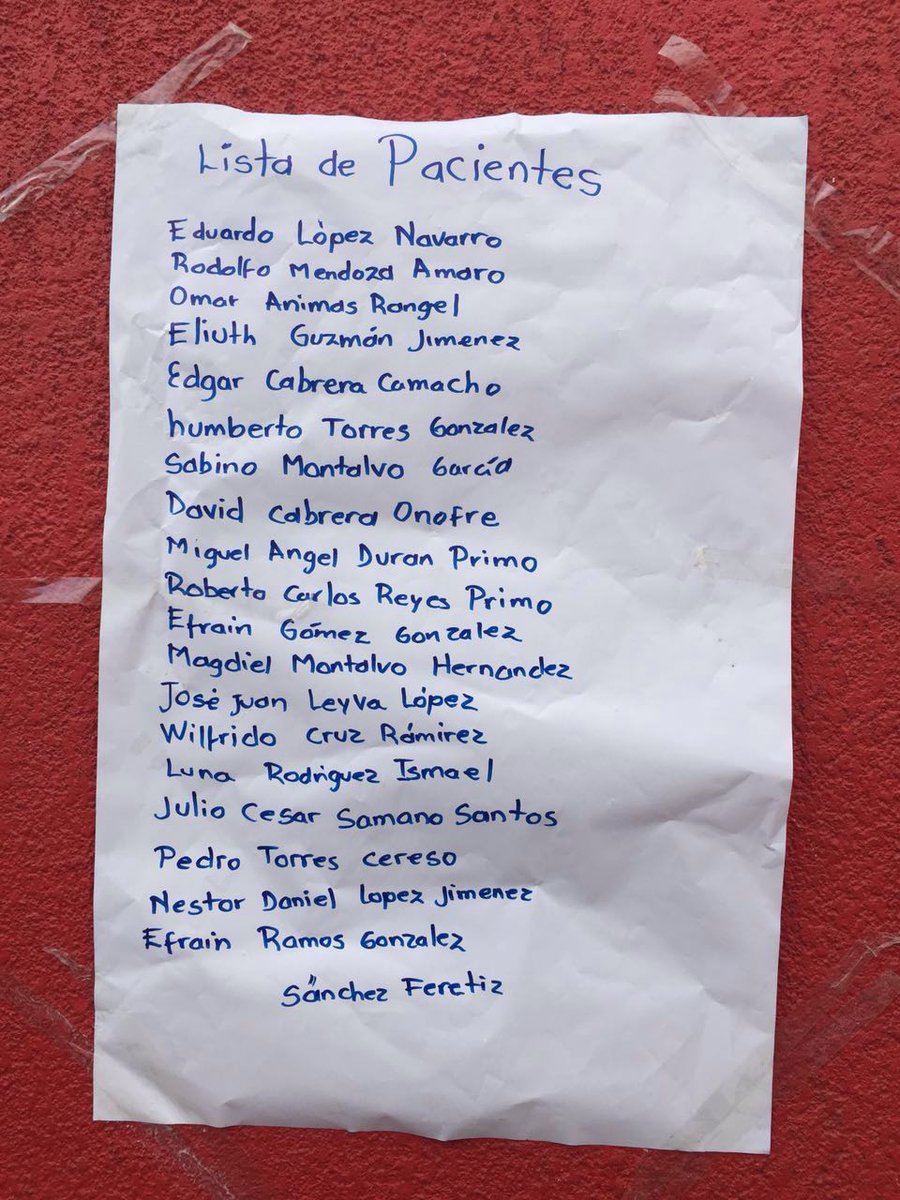 Lista de Pacientes
Eduardo Lòpez Navarro
Rodolfo Mendoza Amaro
Omar Animas Rangel
Eliuth Guzmán Jimenez
Edgar Cabrera Camacho
humberto Torres Gonzalez
Sabino Montalvo García
David Cabrera Onofre
Miguel Angel Duran Primo
Roberto Carlos Reyes Primo
Efrain Gómez Gonzalez
Magdiel Montalvo Hernandez
José juan Leyva López
Wilfrido Cruz Rámirez
Luna Rodriguez Ismael
Julio Cesar Samano Santos
Pedro Torres cereso
Nestor Daniel Lopez Jimenez
Efrain Ramos Gonzalez
Sánchez Feretiz